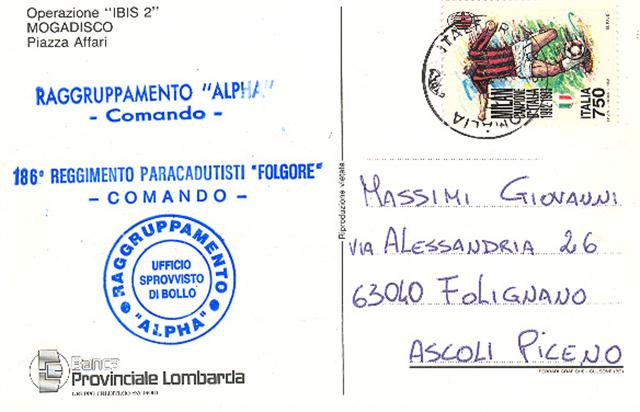 Operazione "IBIS 2"
MOGADISCO
Piazza Affari
RAGGRUPPAMENTO "ALPHA"
- Comando -
186° REGGIMENTO PARACADUTISTI "FOLGORE"
- COMANDO -
RAGGRUPPAMENTO
UFFICIO
SPROVVISTO
DI BOLLO
"ALPHA"
Banca
Provinciale Lombarda
Riproduzione vietata
ITALIA
SOMALIA
MILAN
CAMPIONE
D'ITALIA
1992-1993
ITALIA
750
MASSIMI GIOVANNI
VIA ALESSANDRIA 26
63040 FOLIGNANO
ASCOLI PICENO